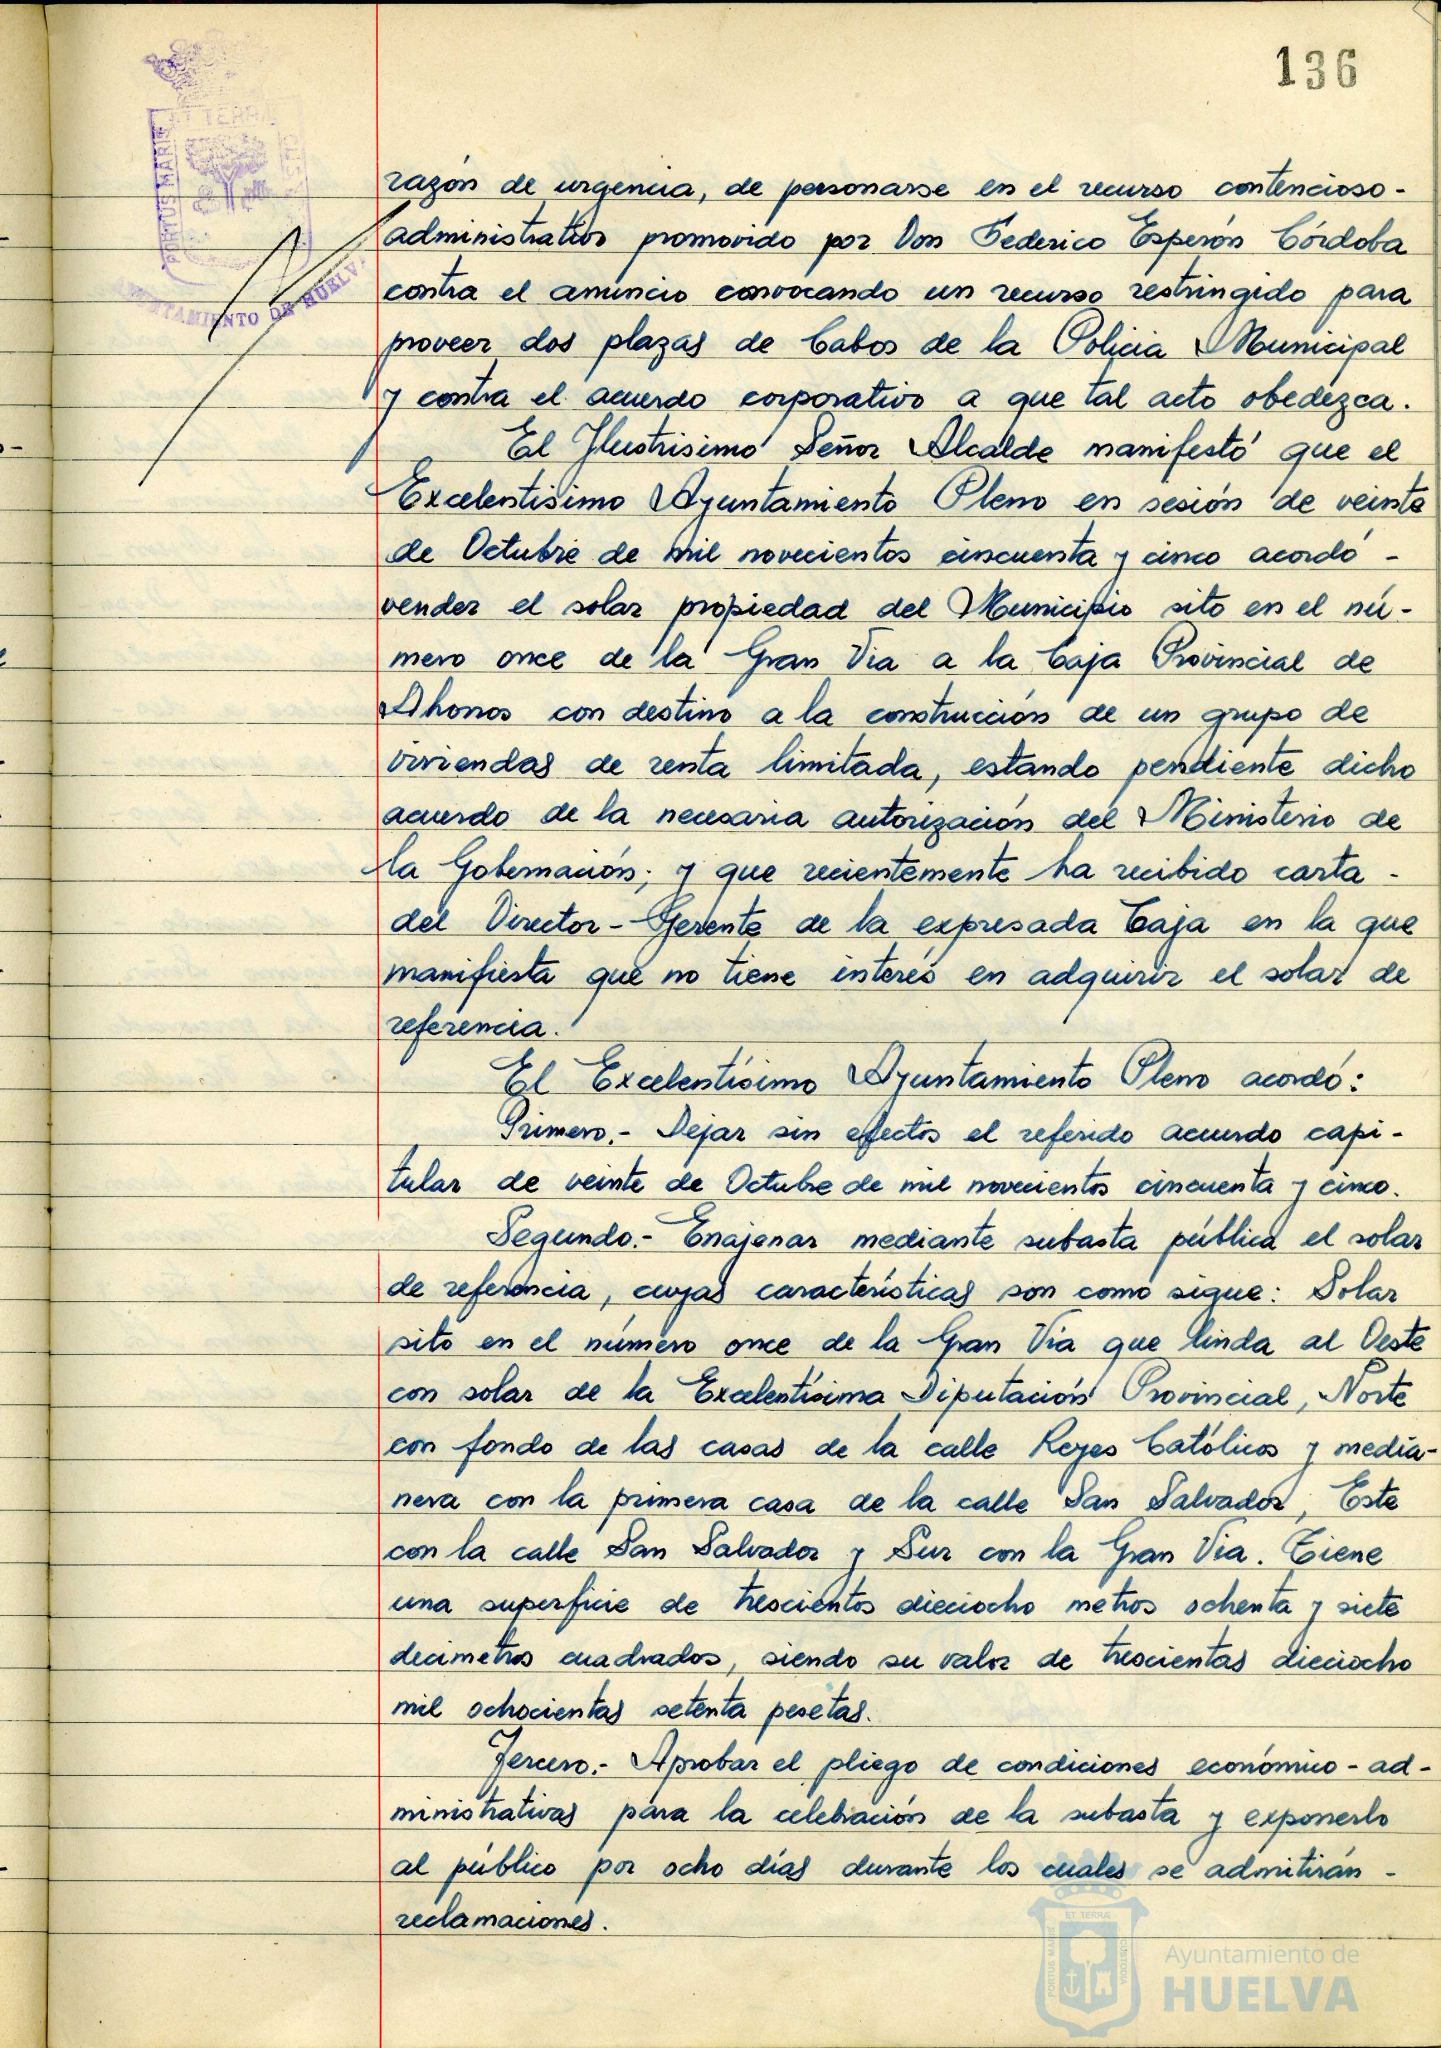 136
PORTUS MARIS
ET TERRÆ
CUSTODIA
AYUNTAMIENTO DE HUELVA
razón de urgencia, de personarse en el recurso contencioso-
administrativo promovido por Don Federico Esperón Córdoba
contra el anuncio convocando un recurso restringido para
proveer dos plazas de Cabos de la Policia Municipal
y contra el acuerdo corporativo a que tal acto obedezca.
El Ilustrisimo Señor Alcalde manifestó que el
Excelentisimo Ayuntamiento Pleno en sesión de veinte
de Octubre de mil novecientos cincuenta y cinco acordó -
vender el solar propiedad del Municipio sito en el nú-
mero once de la Gran Via a la Caja Provincial de
Ahorros con destino a la construcción de un grupo de
viviendas de renta limitada, estando pendiente dicho
acuerdo de la necesaria autorización del Ministerio de
la Gobernación; y que recientemente ha recibido carta -
del Director-Gerente de la expresada Caja en la que
manifiesta que no tiene interés en adquirir el solar de
referencia.
El Excelentísimo Ayuntamiento Pleno acordó:
Primero.- Dejar sin efectos el referido acuerdo capi-
tular de veinte de Octubre de mil novecientos cincuenta y cinco.
Segundo.- Enajenar mediante subasta pública el solar
de referencia, cuyas características son como sigue: Solar
sito en el número once de la Gran Vía que linda al Oeste
con solar de la Excelentísima Diputación Provincial, Norte
con fondo de las casas de la calle Reyes Católicos y media-
nera con la primera casa de la calle San Salvador, Este
con la calle San Salvador y Sur con la Gran Via. Tiene
una superficie de trescientos dieciocho metros ochenta y siete
decimetros cuadrados, siendo su valor de trescientas dieciocho
mil ochocientas setenta pesetas.
Tercero.- Aprobar el pliego de condiciones económico-ad-
ministrativas para la celebración de la subasta y exponerlo
al público por ocho días durante los cuales se admitirán -
reclamaciones.
PORTUS MARIS
ET TERRÆ
CUSTODIA
Ayuntamiento de
HUELVA